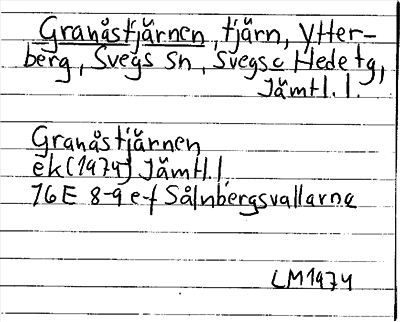 Granåstjärnen, tjärn, Ytter-
berg, Svegs Sn, Svegs c Hede tg,
Jämtl. l.
Granåstjärnen
ek (1974) Jämtl. l.
16E 8-9 e-f Sålnbergsvallarna
LM1974